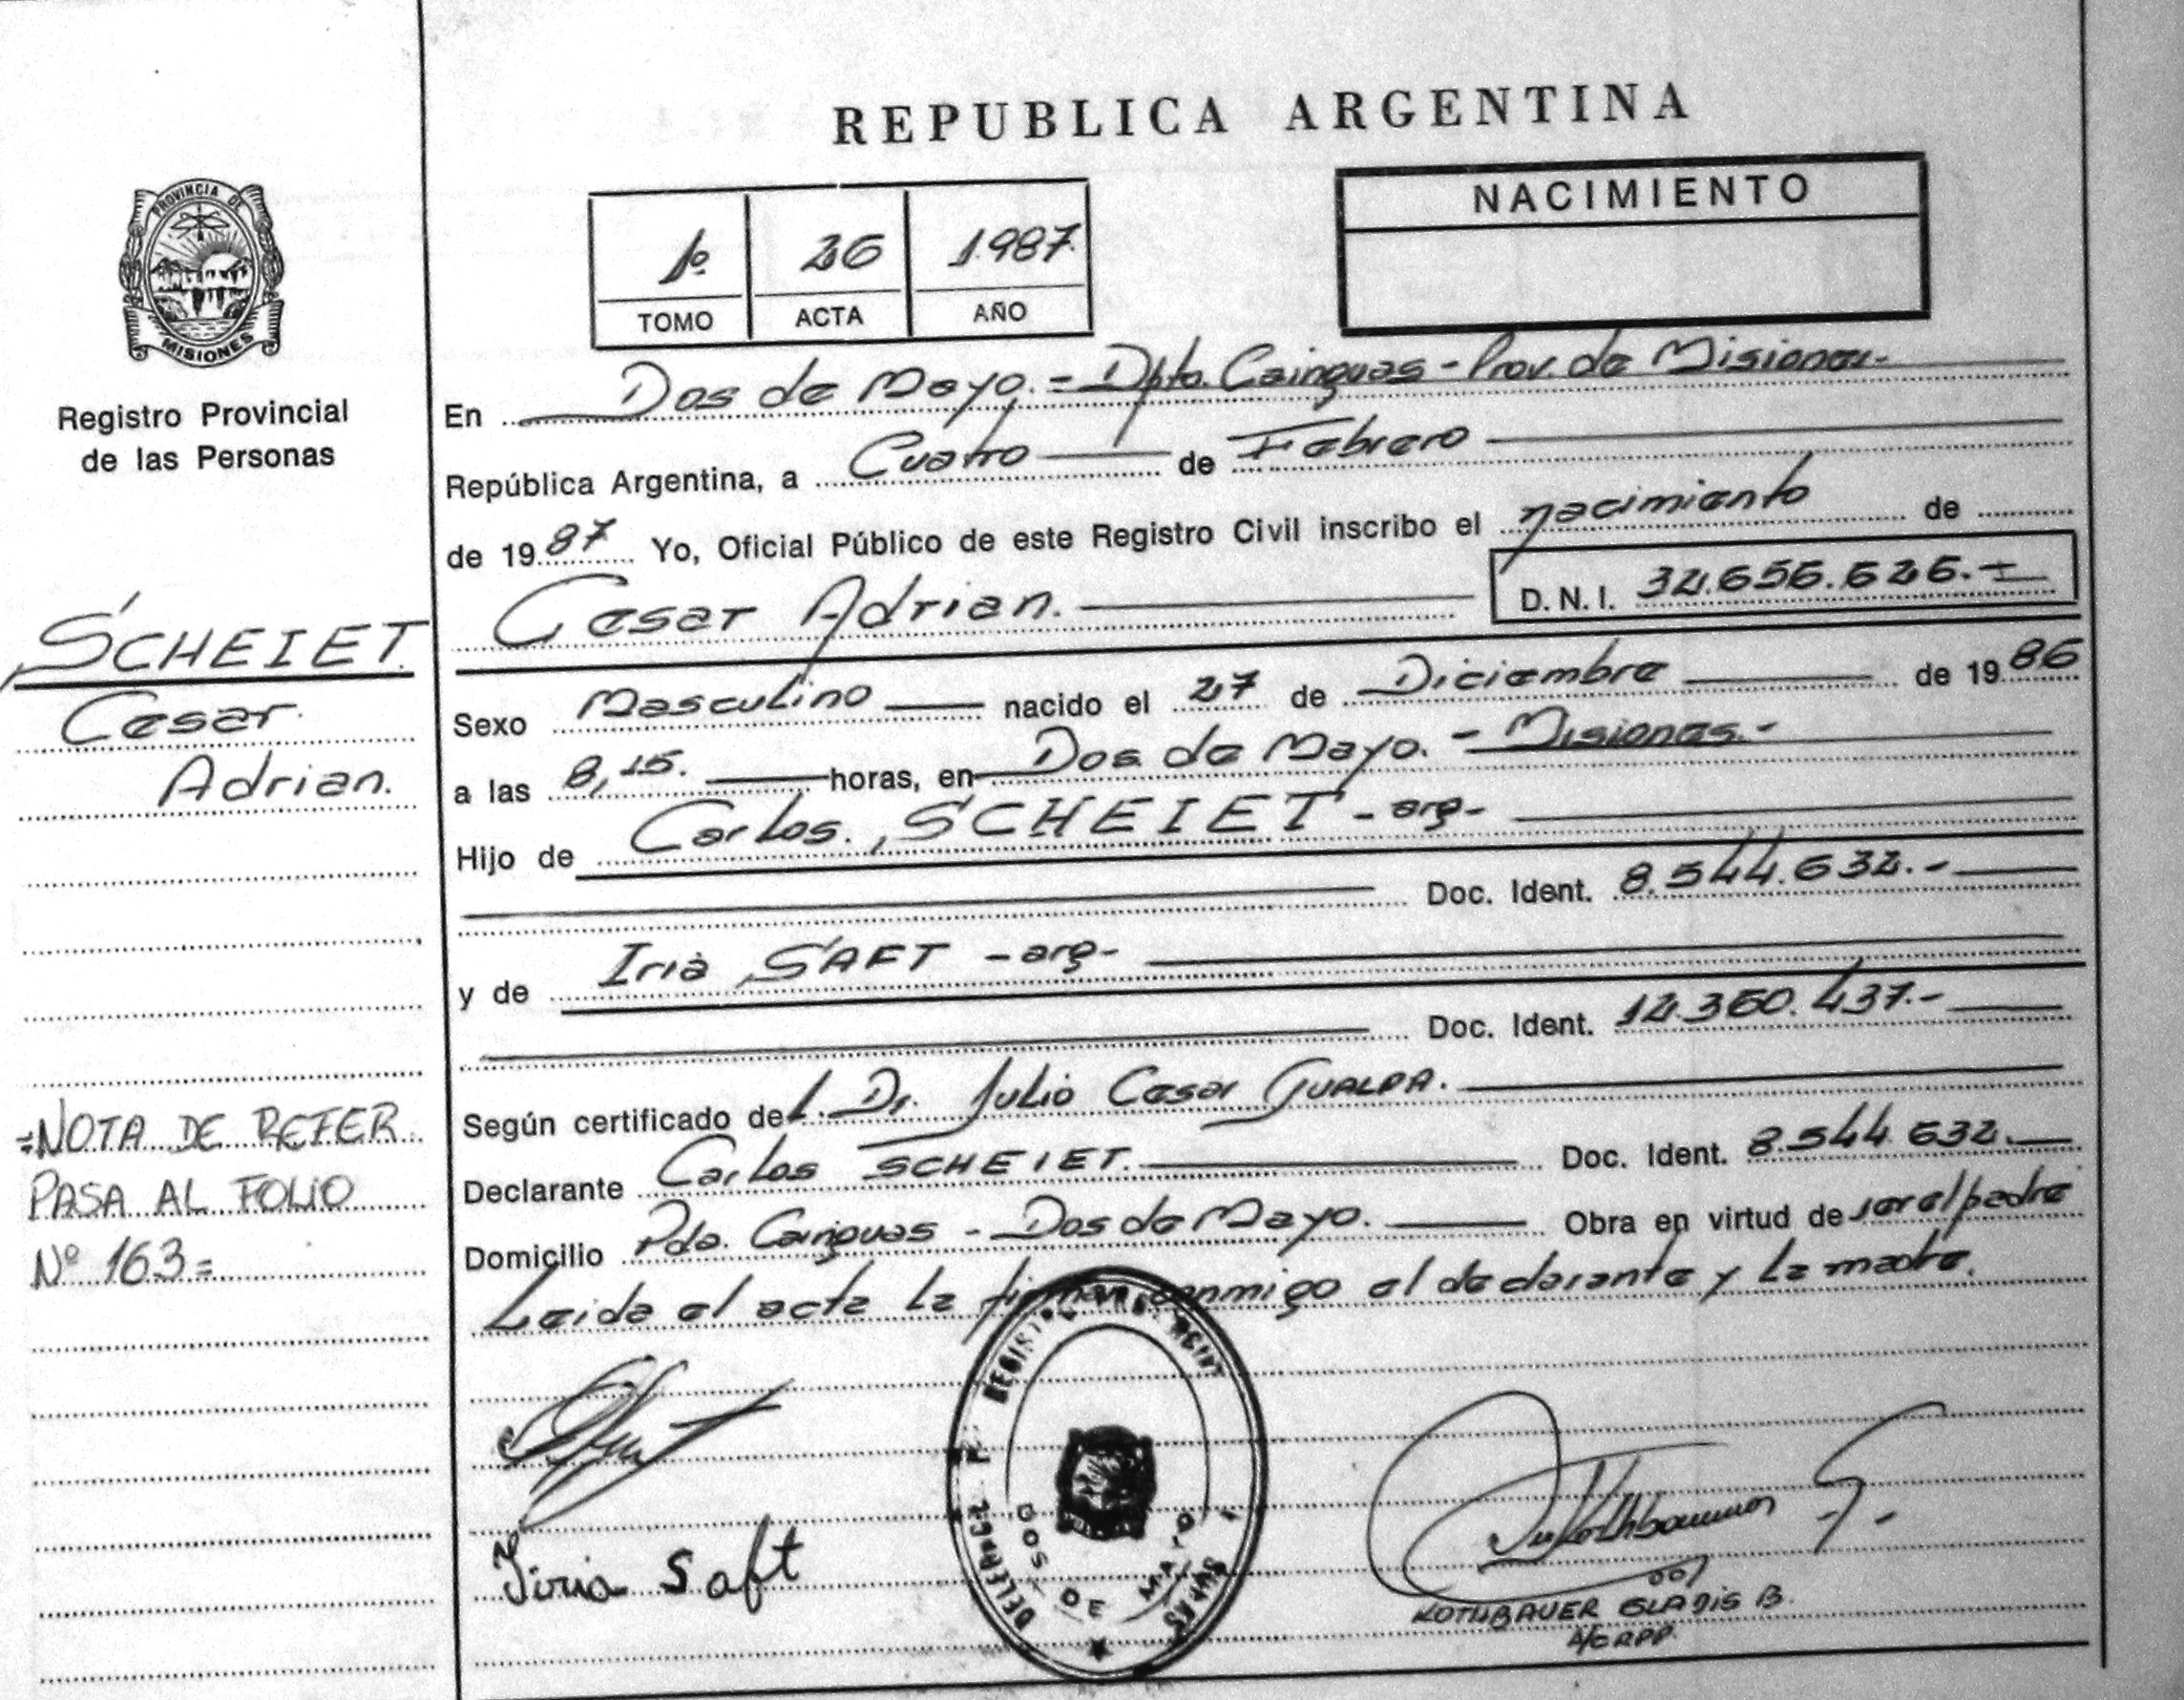 REPUBLICA ARGENTINA
PROVINCIA DE
MISIONES
Registro Provincial
de las Personas
1º 26 1.987
TOMO ACTA AÑO
NACIMIENTO
En Dos de Mayo.= Dpto. Cainguas - Prov. de Misiones.-
República Argentina, a Cuatro de Febrero
de 1987 Yo, Oficial Público de este Registro Civil inscribo el nacimiento de
Cesar Adrian. D.N.I. 32.656.626.-
SCHEIET
Cesar
Adrian.
Sexo Masculino nacido el 27 de Diciembre de 1986
a las 8,15. horas, en Dos de Mayo. - Misiones.-
Hijo de Carlos SCHEIET - arg-
Doc. Ident. 8.544.632.-
y de Iria SAFT - arg-
Doc. Ident. 12.360.437.-
Según certificado del. Dr. Julio Cesar GUALDA.
Declarante Carlos SCHEIET. Doc. Ident. 8.544.632.
Domicilio Pda. Cainguas - Dos de Mayo. Obra en virtud de ser el padre
Leida el acta la firman conmigo el declarante y la madre.
=NOTA DE REFER
PASA AL FOLIO
Nº 163=
Iria Saft
DOS DE MAYO
ROTHBAUER GLADIS B.
A/C RPP